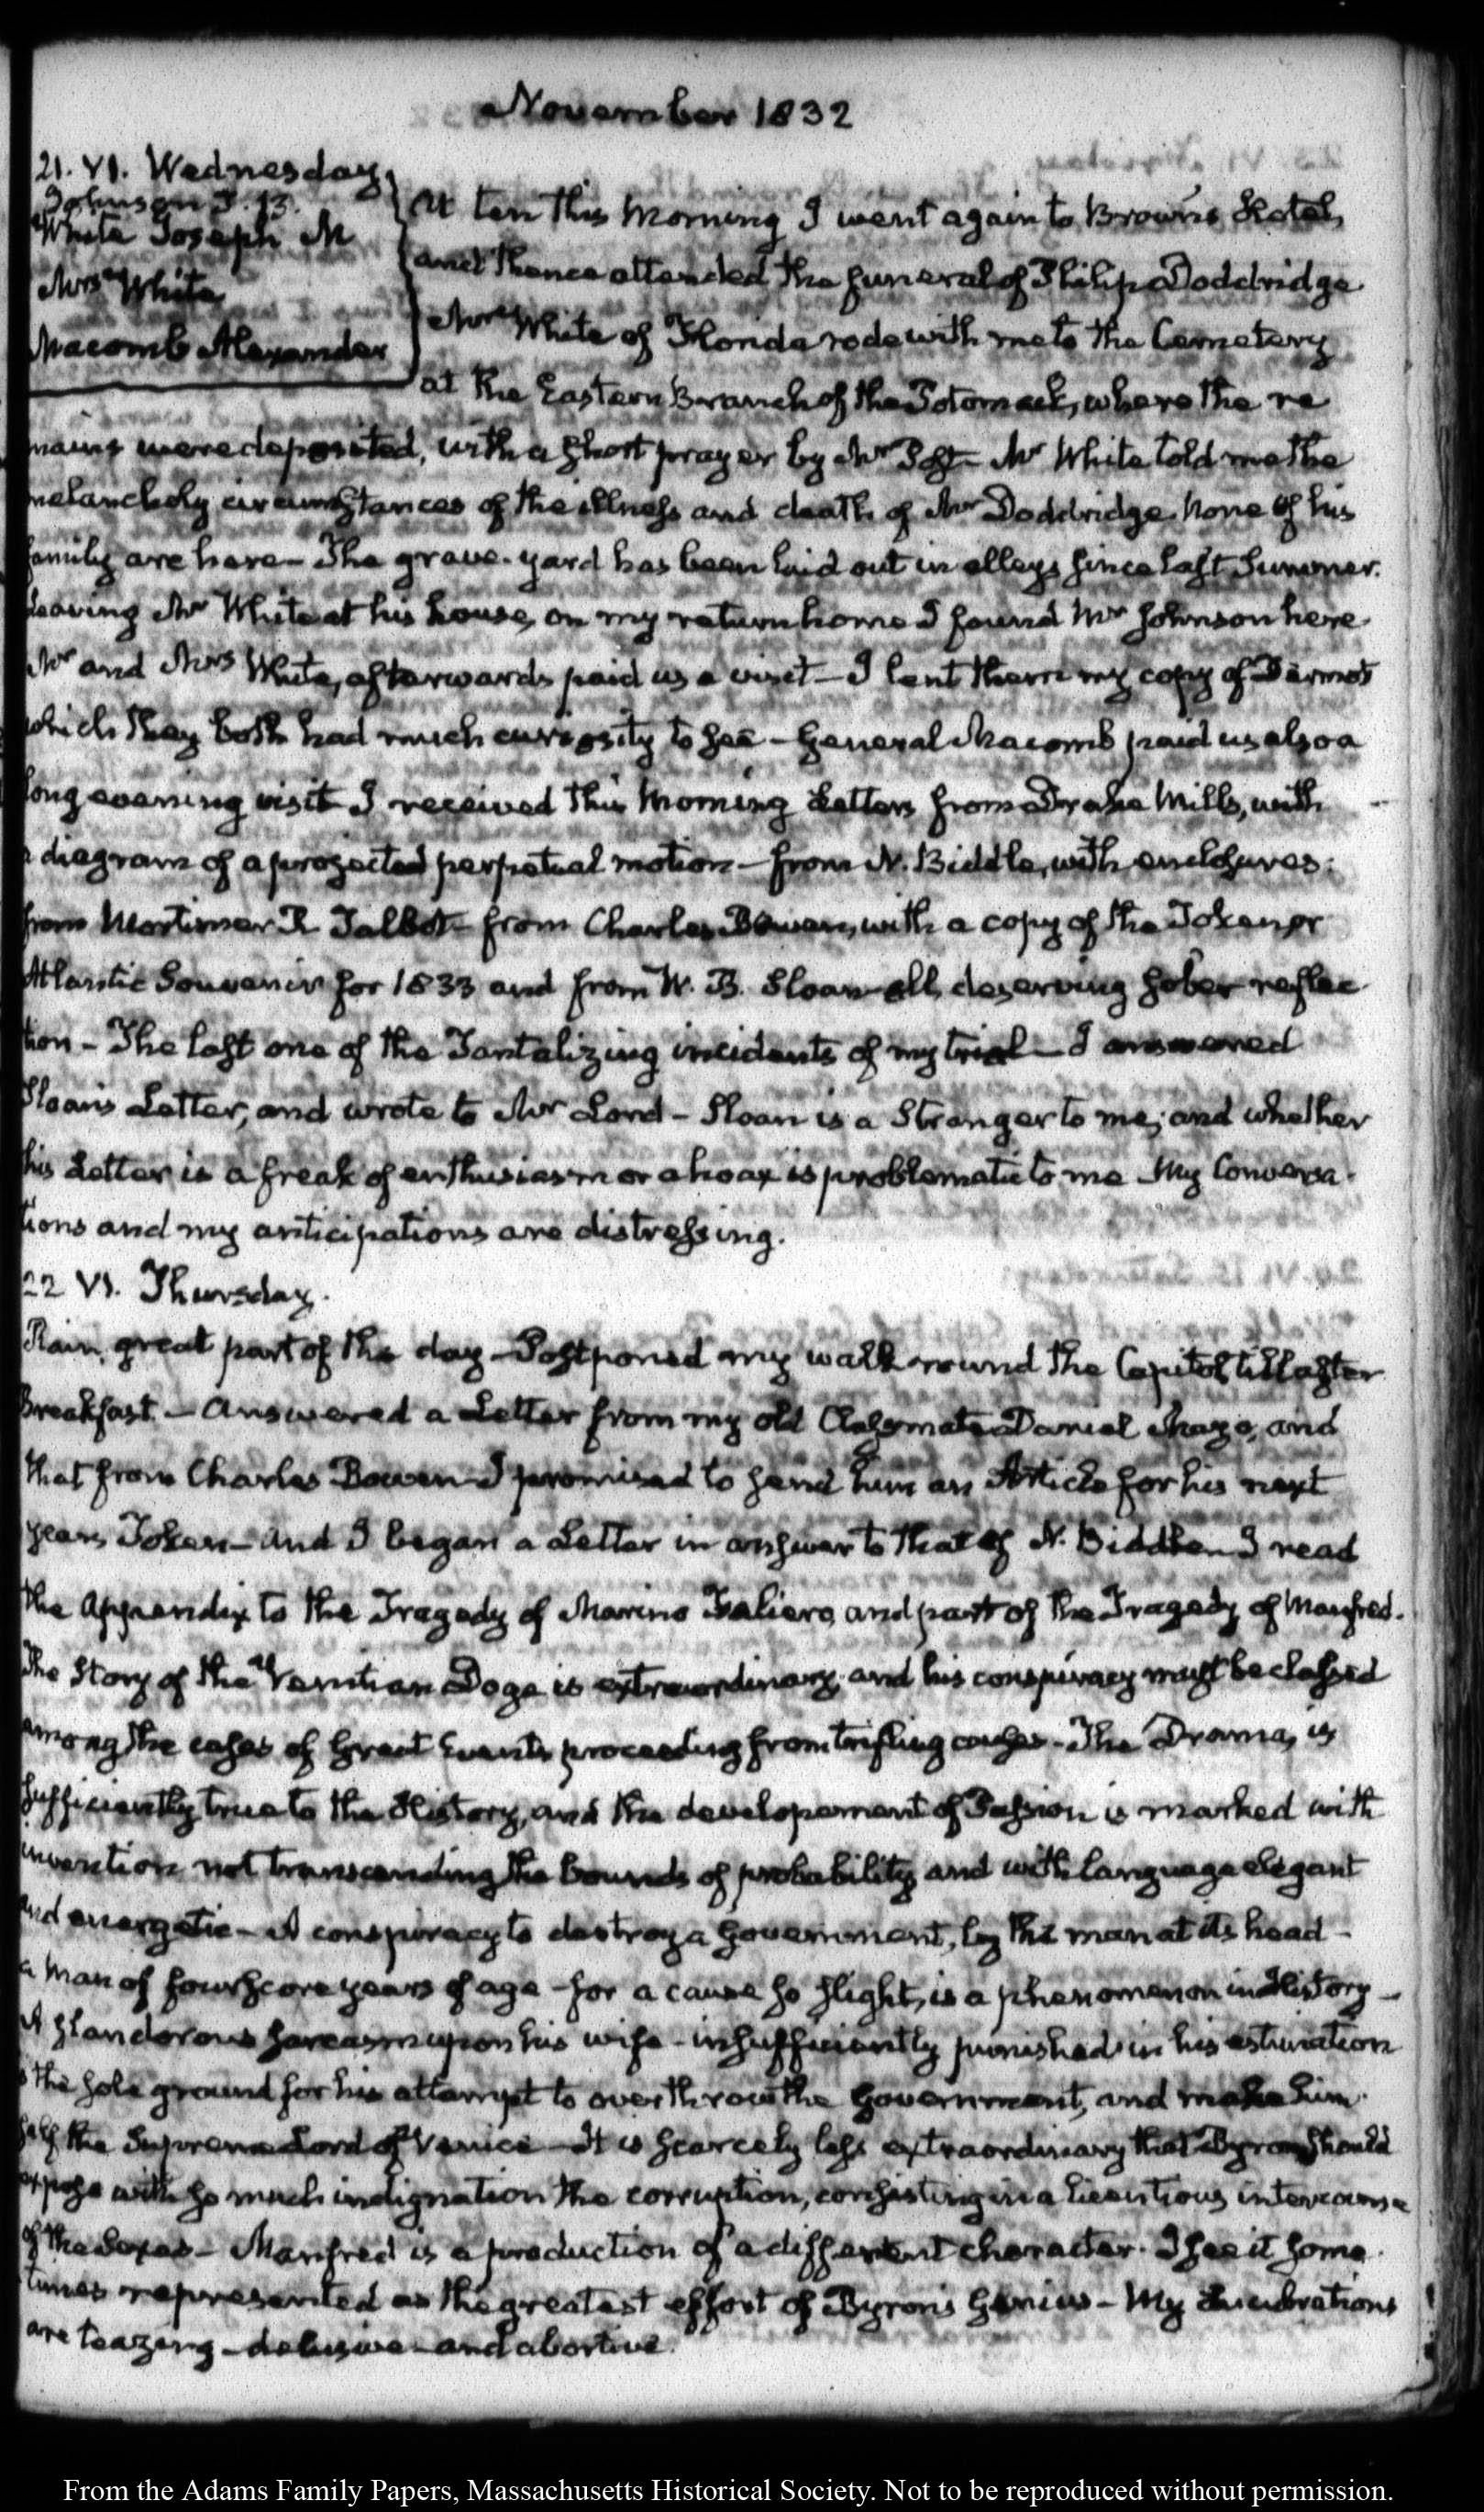 November 1832
21. VI. Wednesday.
Johnson J. B.
White Joseph M
Mrs White
Macomb Alexander
At ten this Morning I went again to Brown's Hotel,
and thence attended the funeral of Philip Doddridge
White of Florida rode with me to the Cemetery
at the Eastern Branch of the Potomack, where the re
mains were deposited, with a short prayer by Mr Post— Mr White told me the
melancholy circumstances of the illness and death of Mr Doddridge. None of his
family are here— The grave-yard has been laid out in alleys since last Summer.
Leaving Mr White at his house, on my return home I found Mr Johnson here
Mr and Mrs White, afterwards paid us a visit— I lent them my copy of Dermot
which they both had much curiosity to see— General Macomb paid us also a
long evening visit— I received this Morning Letters from Drake Mills, with
a diagram of a projected perpetual motion— from N. Biddle, with enclosures:
from Mortimer R Talbot— from Charles Bowen, with a copy of the Token or
Atlantic Souvenir for 1833 and from W. B. Sloan— all, deserving sober reflec
tion— The last one of the Tantalizing incidents of my trial— I answered
Sloan's Letter, and wrote to Mr Lord— Sloan is a Stranger to me; and whether
his Letter is a freak of enthusiasm or a hoax is problematic to me My Conversa-
tions and my anticipations are distressing.
22 VI. Thursday.
Rain, great part of the day— Postponed my walk round the Capitol till after
Breakfast.— Answered a Letter from my old Classmate Daniel Mayo, and
that from Charles Bowen— I promised to send him an Article for his next
years Token— and I began a Letter in answer to that of N. Biddle— I read
the Appendix to the Tragedy of Marino Faliero, and part of the Tragedy of Manfred.
The Story of the Venitian Doge is extraordinary; and his conspiracy must be classed
among the cases of Great Events proceeding from trifling causes— The Drama, is
sufficiently true to the History, and the developement of Passion is marked with
invention not transcending the bounds of probability, and with language elegant
and energetic— A conspiracy to destroy a Government, by the man at its head—
a Man of fourscore years of age— for a cause so slight, is a phenomenon in History—
A slanderous sarcasm upon his wife— insufficiently punished in his estimation
the sole ground for his attempt to overthrow the Government, and make him-
self the Supreme Lord of Venice— It is scarcely less extraordinary that Byron should
expose with so much indignation the corruption, consisting in a licentious intercourse
of the Sexes— Manfred is a production of a different character. I see it some-
times represented as the greatest effort of Byron's Genius— My Lucubrations
are teazing— delusive— and abortive.
From the Adams Family Papers, Massachusetts Historical Society. Not to be reproduced without permission.